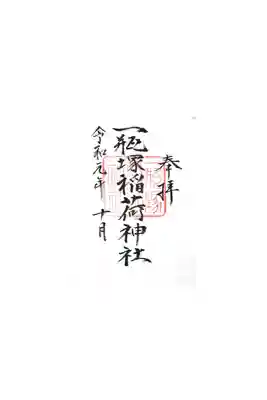 奉拝
一瓶塚稲荷神社
令和元年十月